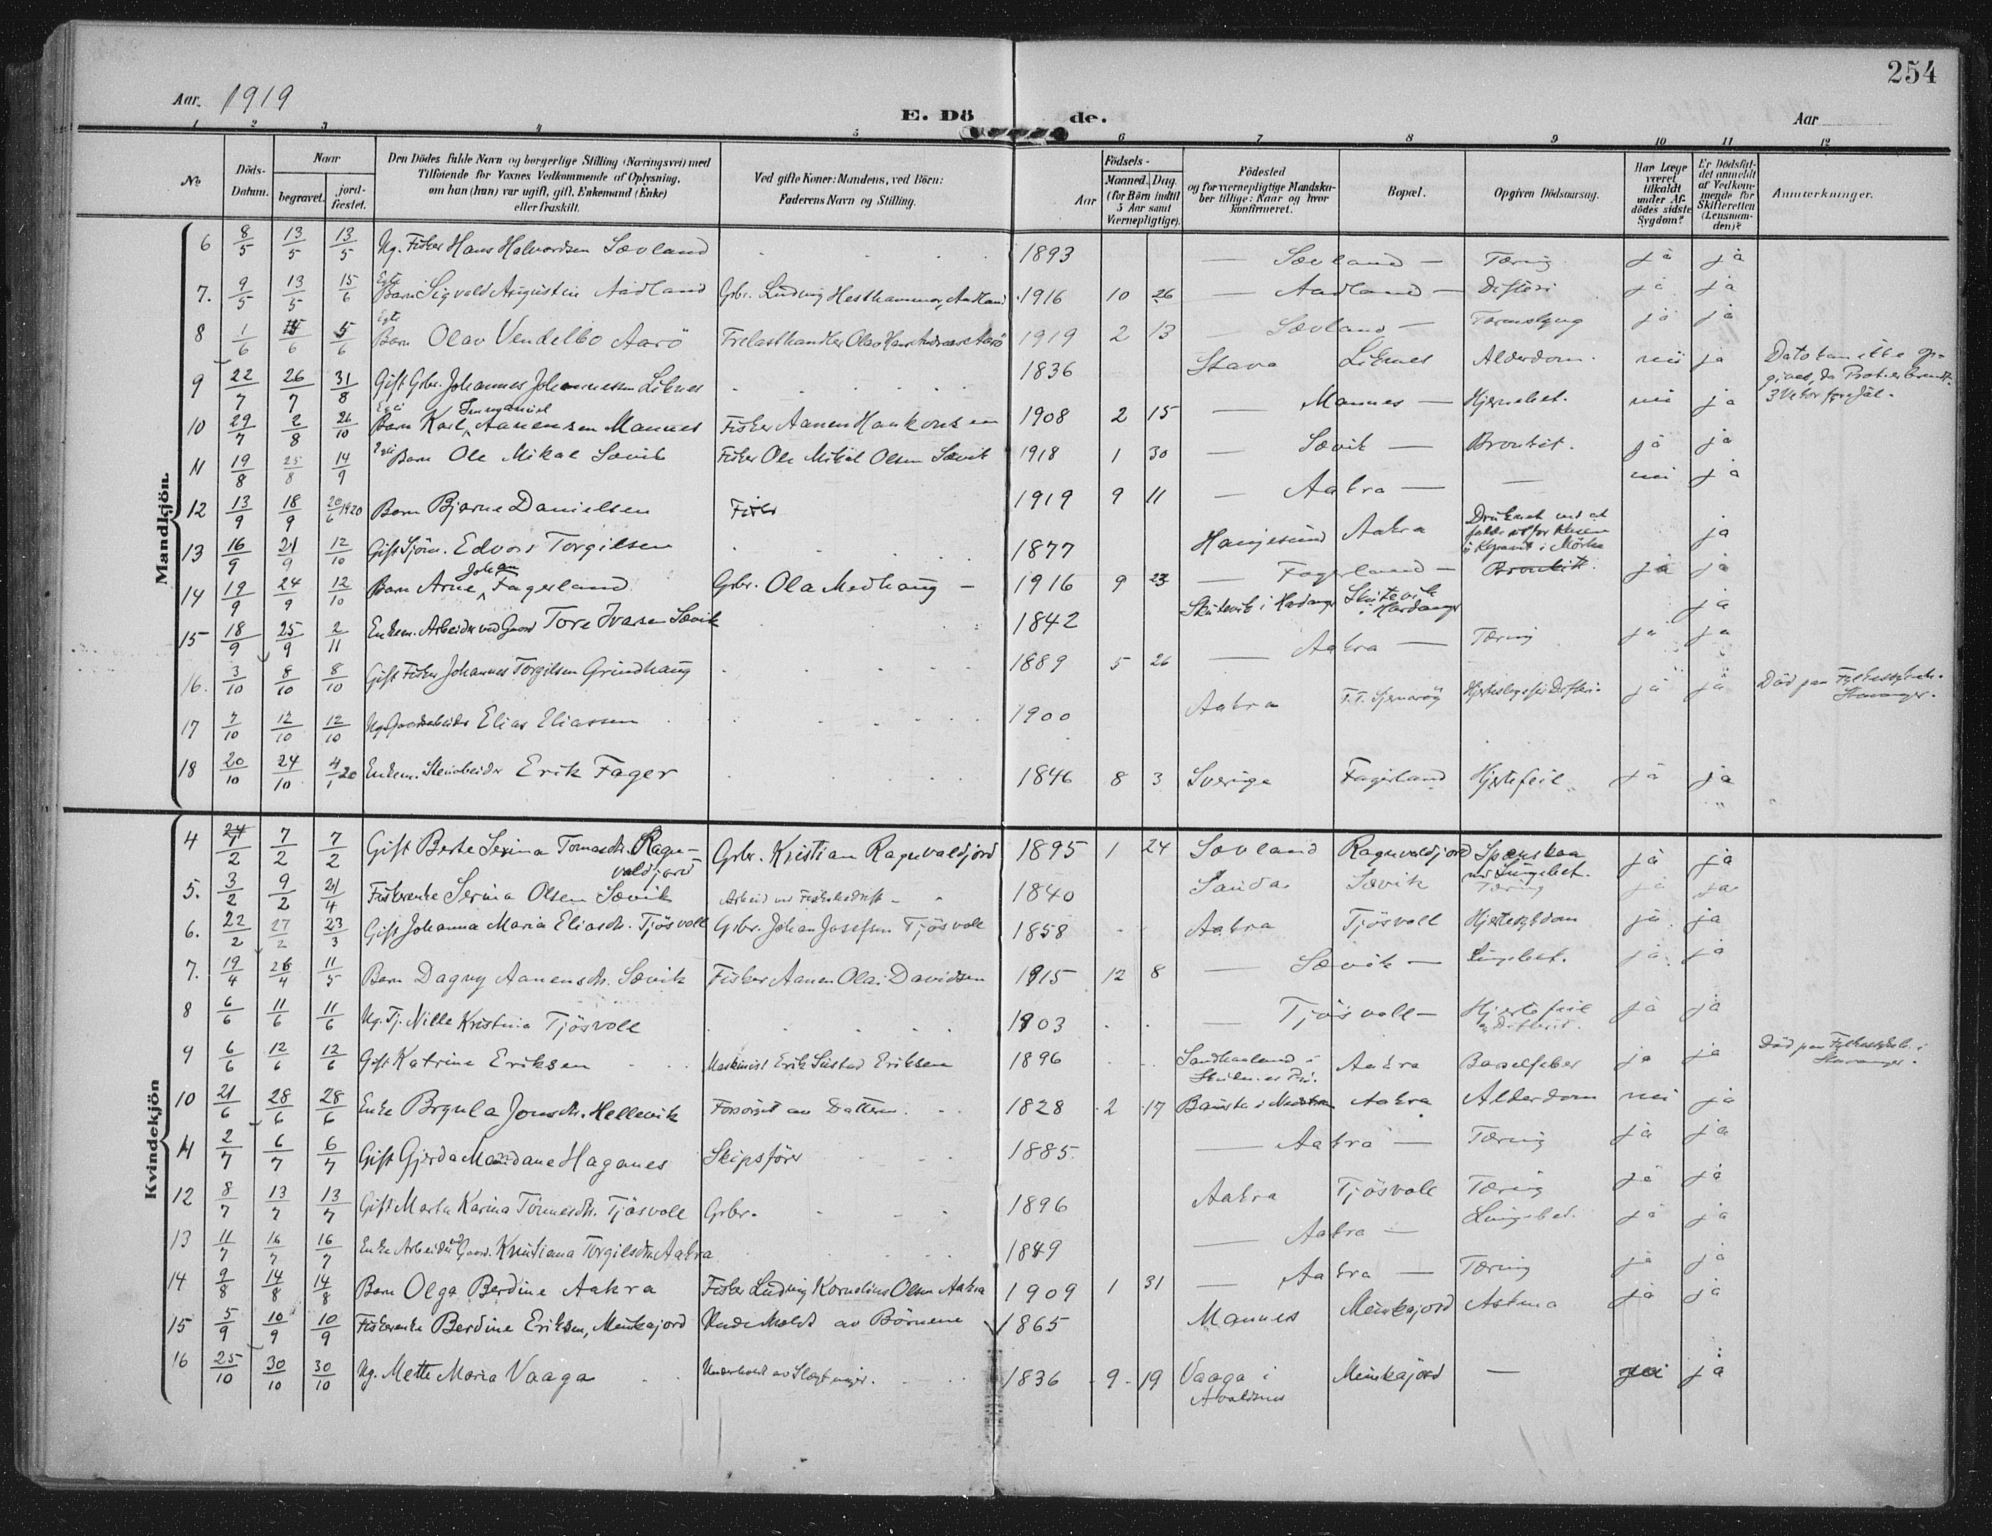 254
Aar. 1919
E. Døde.
Aar
1 2 3 4 5 6 7 8 9 10 11 12
No
Döds-Datum.
Naar
begravet.
jordfæstet.
Den Dödes fulde Navn og borgerlige Stilling (Næringsvei) med
Tilföiende for Voxnes Vedkommende af Oplysning,
om han (hun) var ugift, gift, Enkemand (Enke)
eller fraskilt.
Ved gifte Koner: Mandens, ved Börn:
Faderens Navn og Stilling.
Födsels-
Aar
Maaned. Dag
(for Börn indtil
5 Aar samt
Værnepligtige).
Födested
og for værnepligtige Mandska-
ber tillige: Naar og hvor
konfirmeret.
Bopæl.
Opgiven Dödsaarsag.
Har Læge
været
tilkaldt
under Af-
dödes sidste
Sygdom?
Er Dödsfal-
det anmeldt
af Vedkom-
mende for
Skifteretten
(Lensman-
den)?
Anmærkninger.
Mandkjön.
6 8/5 13/5 13/5 Ug. Fisker Hans Halvordsen Sævland 1893 — Sævland — Tæring ja ja
7. 9/5 13/5 15/6 Egte Barn Sigvald Augustin Aadland Gbr. Ludvig Hesthammer, Aadland 1916 10 26 — Aadland — Difteri ja ja
8 1/6 5/6 5/6 Egte Barn Olav Vendelbo Aarö Olav Hans Andreas Aarö 1919 2 13 — Sævland — ja ja
9 22/7 26/7 31/8 Gift Gbr. Johannes Johannesen Liknes 1836 Stava Liknes Alderdom. nei ja
10 29/7 2/8 26/10 Barn Karl Emmanuel Aanensen Mannes Fisker Aanen Haakonsen 1908 2 15 — Mannes — Hjernebet. nei ja
11 19/8 25/8 14/9 Barn Ole Mikal Sævik Fisker Ole Mikal Olsen Sævik 1918 1 30 — Sævik — Bronkit. ja ja
12 13/9 18/9 20/6 1920 Barn Bjarne Danielsen Fisker 1919 9 11 — Aakra — — nei ja
13 16/9 21/9 12/10 Gift Sjöm. Edvois Torgilsen 1877 Haugesund Aakra Druknet ved at falde ut for i Mörke ja
14 19/9 24/9 12/10 Barn Arne Johan Fagerland Gbr. Ola Medhaug — 1916 9 23 — Fagerland — Bronkit. ja ja
15 18/9 25/9 2/11 Enkem. Arbeider ved Gaard Tore Ivarsen Sævik 1842 Skutevik i Hardanger Skutevik i Hardanger ja
16. 3/10 8/10 8/10 Gift Fisker Johannes Torgilsen Grindhaug 1889 5 26 — Aakra — Tæring ja ja
17 7/10 12/10 12/10 Ug. Gaardarbeider Elias Eliassen 1900 Aakra ja ja Död paa Fylkessykeh. Stavanger.
18 20/10 24/10 4/1 20 Enkem. Stenarbeider Erik Fager 1846 8 3 Sverige Fagerland Hjertefeil ja ja
Kvindekjön
4 7/2 7/2 7/2 Gift Berte Serina Tomasdt. Ragnvaldjord Gbr. Kristian Ragnvaldjord 1895 1 24 Sævland Ragnvaldjord Spanskan med Lungebet. ja ja
5. 3/2 9/2 21/4 Fiskerenke Serina Olsen Sævik Arbeid ved Fiskebedrift 1840 Sanda Sævik Tæring ja ja
6. 22/2 27/2 23/3 Gift Johanna Maria Eliasdt. Tjösvoll Gbr. Johan Josefsen Tjösvoll 1858 Aakra Tjösvoll Hjertesykdom ja ja
7. 19/4 26/4 11/5 Barn Dagny Aanensdt. Sævik Fisker Aanen Olai Davidsen 1915 12 8 — Sævik — Lungebet. ja ja
8 6/6 11/6 11/6 Ug. Tj. Nille Kristina Tjösvoll 1903 — Tjösvoll — Hjertefeil ja ja
9 6/6 12/6 12/6 Gift Katrine Eriksen Maskinist Erik Eriksen 1896 Sandhaaland i Skudenes Aakra Barselfeber ja ja Död paa Fylkessykeh. i Stavanger.
10 21/6 28/6 28/6 Enke Brynla Jonsdt. Hellevik Forsörget av Datteren. 1828 2 17 Aakra Alderdom nei ja
11 2/7 6/7 6/7 Gift Gjerda Mandane Haganes Skipsförer 1885 — Aakra — Tæring ja ja
12 8/7 13/7 13/7 Gift Marta Karina Tönnesdt. Tjösvoll Gbr. 1896 Aakra Tjösvoll Tæring ja ja
13 11/7 16/7 16/7 Enke Arbeider Gaard. Kristiana Torgilsdtr. Aakra 1849 — Aakra — Lungebet. ja ja
14 9/8 14/8 14/8 Barn Olga Berdine Aakra Fisker Ludvig Kornelius Olsen Aakra 1909 1 31 — Aakra — Tæring ja ja
15 5/9 10/9 10/9 Fiskerenke Berdine Eriksen, Meinkajord Underholdt av Börnene 1865 Mannes Meinkajord Astma ja ja
16 25/10 30/10 30/10 Ug. Mette Maria Vaaga Underholdt av Slægtninger. 1836 9 19 Vaaga i Avaldsnes Meinkajord — nei ja